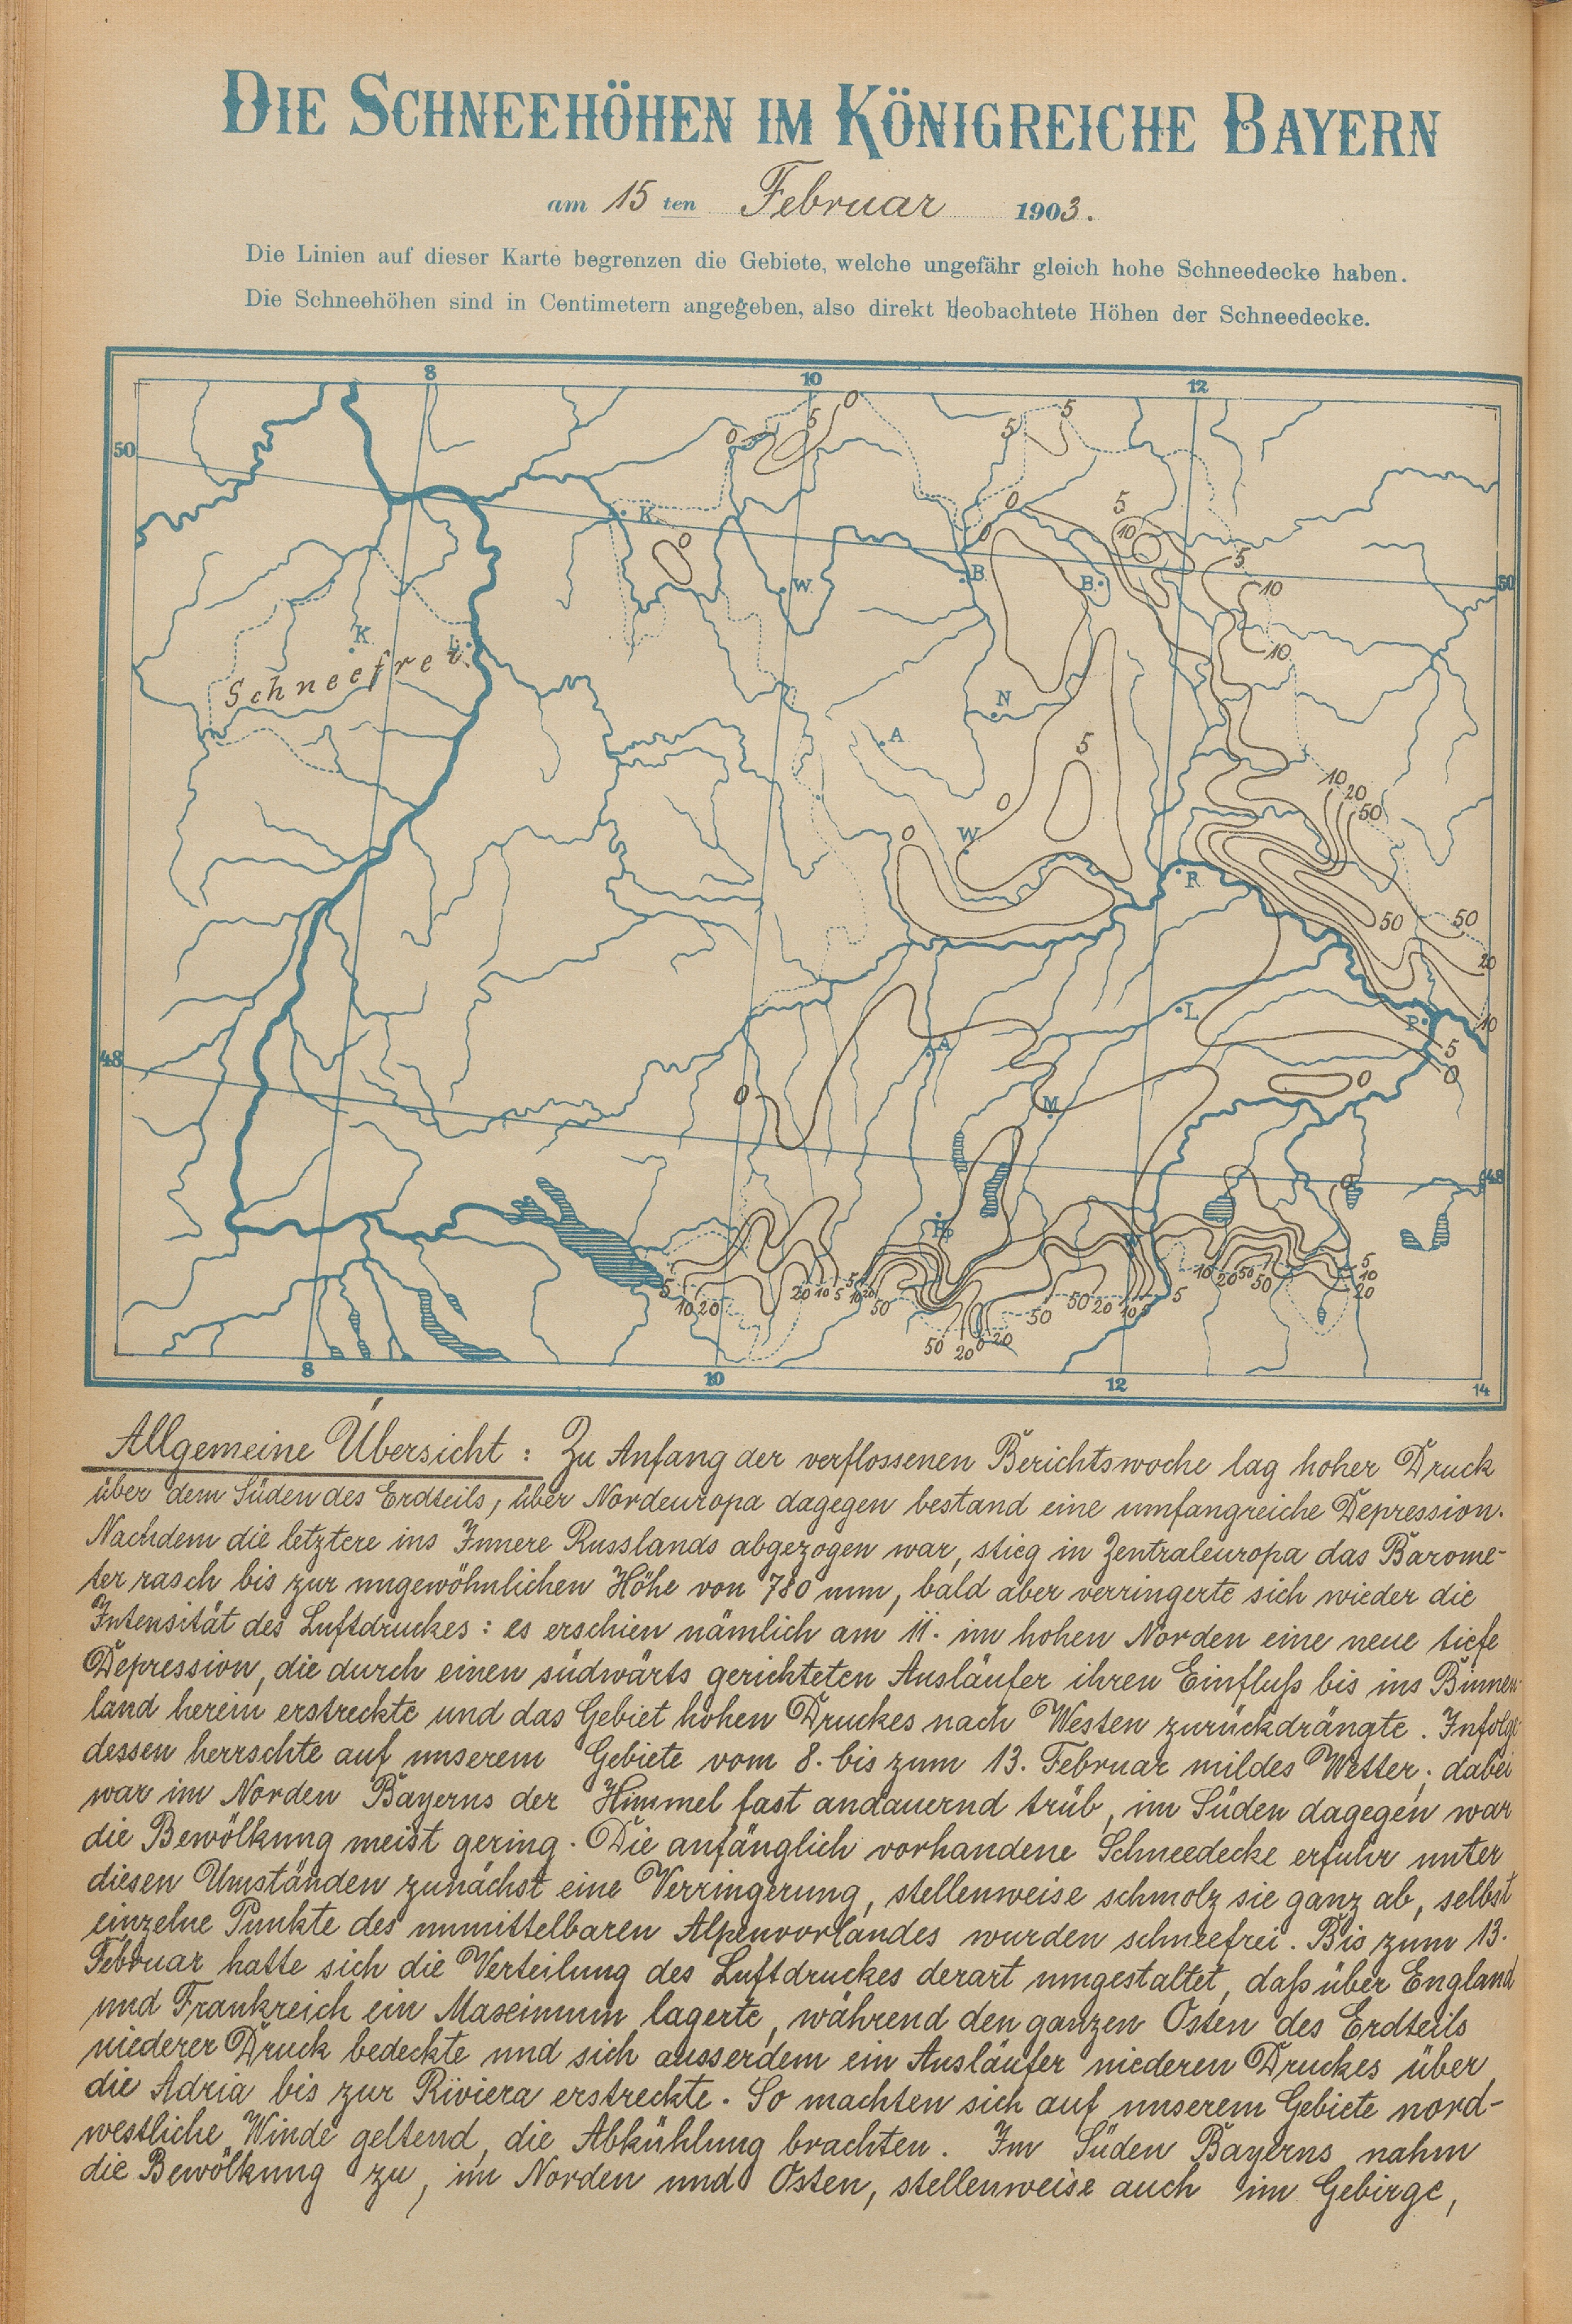 DIE SCHNEEHÖHEN IM KÖNIGREICHE BAYERN
am 15 ten Februar 1903.
Die Linien auf dieser Karte begrenzen die Gebiete, welche ungefähr gleich hohe Schneedecke haben.
Die Schneehöhen sind in Centimetern angegeben, also direkt beobachtete Höhen der Schneedecke.
8 10 12
0 5 0 5 5
50
K. 0 0 0 5 10
5 10 50
W. B. B.
K L. 10
Schneefrei.
N
A 5
0 10 20 50
0 W
R.
50 50
20
L. P. 10
48 A 5
0 M 0 0
48
0
5 10 20 20 10 5 5 10 20 50 50 20 0 20 50 50 20 10 5 5 10 20 50 50 5 10 20
8 10 12 14
Allgemeine Übersicht: Zu Anfang der verflossenen Berichtswoche lag hoher Druck
über dem Süden des Erdteils, über Nordeuropa dagegen bestand eine umfangreiche Depression.
Nachdem die letztere ins Innere Russlands abgezogen war, stieg in Zentraleuropa das Barome-
ter rasch bis zur ungewöhnlichen Höhe von 780 mm, bald aber verringerte sich wieder die
Intensität des Luftdruckes: es erschien nämlich am 11. im hohen Norden eine neue tiefe
Depression, die durch einen südwärts gerichteten Ausläufer ihren Einfluß bis ins Binnen-
land herein erstreckte und das Gebiet hohen Druckes nach Westen zurückdrängte. Infolge
dessen herrschte auf unserem Gebiete vom 8. bis zum 13. Februar mildes Wetter; dabei
war im Norden Bayerns der Himmel fast andauernd trüb, im Süden dagegen war
die Bewölkung meist gering. Die anfänglich vorhandene Schneedecke erfuhr unter
diesen Umständen zunächst eine Verringerung, stellenweise schmolz sie ganz ab, selbst
einzelne Punkte des unmittelbaren Alpenvorlandes wurden schneefrei. Bis zum 13.
Februar hatte sich die Verteilung des Luftdruckes derart umgestaltet, daß über England
und Frankreich ein Maximum lagerte, während den ganzen Osten des Erdteils
niederer Druck bedeckte und sich ausserdem ein Ausläufer niederen Druckes über
die Adria bis zur Riviera erstreckte. So machten sich auf unserem Gebiete nord-
westliche Winde geltend, die Abkühlung brachten. Im Süden Bayerns nahm
die Bewölkung zu, im Norden und Osten, stellenweise auch im Gebirge,